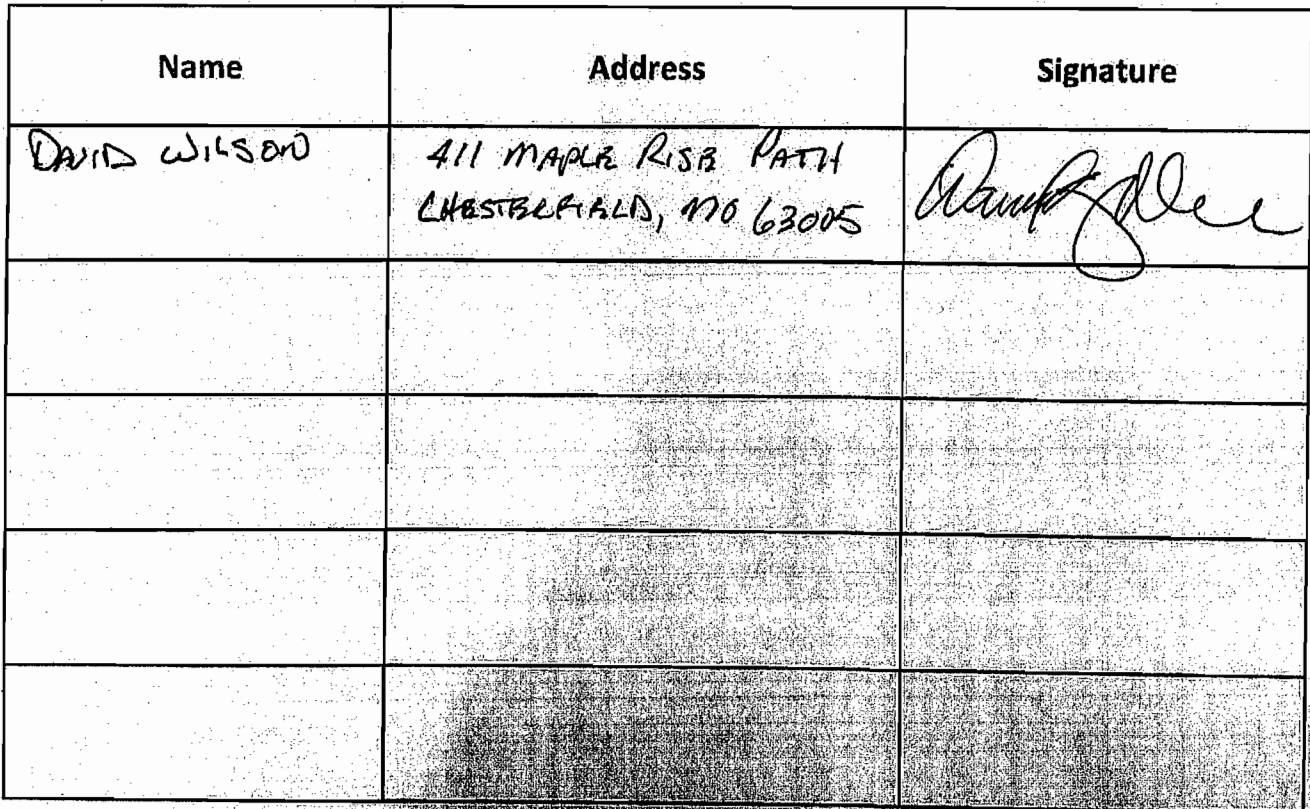 Name Address Signature
DAVID WILSON
411 MAPLE RISE PATH
CHESTERFIELD, MO 63005